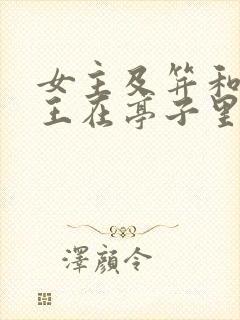 女主及笄和
王在亭子里
澤顔令